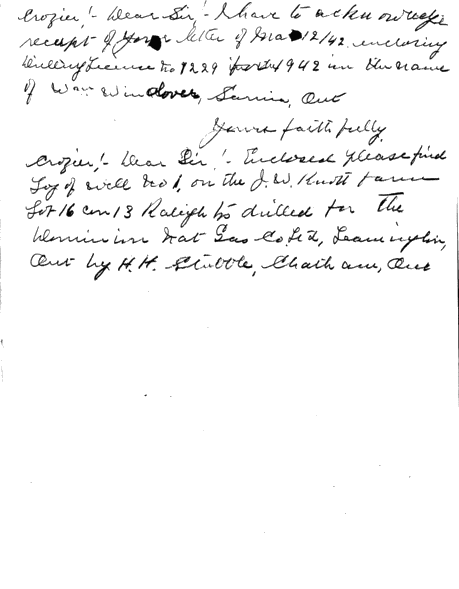 Crozier,!- Dear Sir'- I have to acknowledge
receipt of your letter of Ma 12/42 enclosing
Drilling License No 1229 for 1942 in the name
of Wm Windover, Sarnia, Ont
Yours faithfully
Crozier,!- Dear Sir'!- Enclosed please find
Log of well No 1, on the J.W. Knott farm
Lot 16 con 13 Raleigh Tp drilled for the
Dominion Nat Gas Co Ltd, Leamington,
Ont by H.H. Stubble, Chatham, Ont